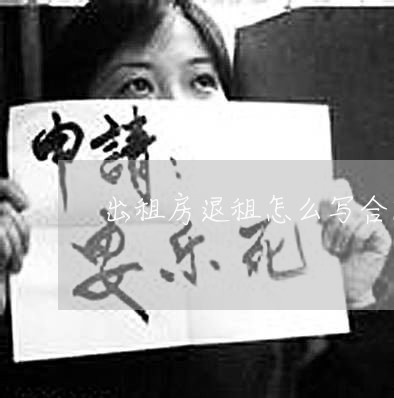 申請：
出租房退租怎么写合
安乐死